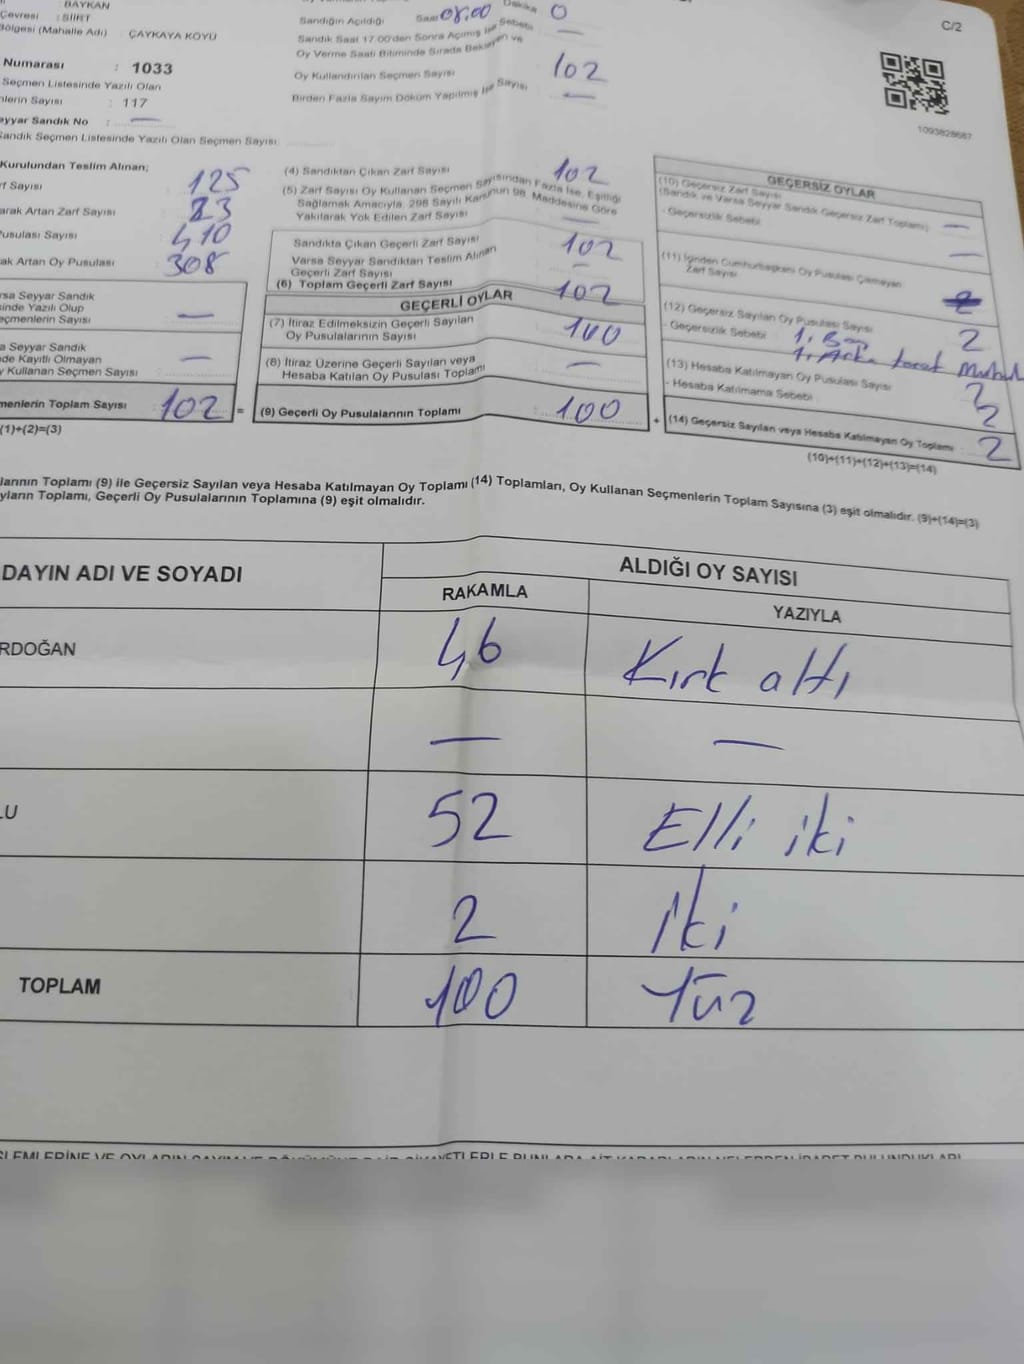 BAYKAN
Çevresi : SİİRT
Bölgesi (Mahalle Adı) ÇAYKAYA KÖYÜ
Numarası : 1033
Seçmen Listesinde Yazılı Olan
Sayısı : 117
Sandık No : —
Sandık Seçmen Listesinde Yazılı Olan Seçmen Sayısı
Sandığın Açıldığı Saat 08.00 Dakika 0
Sandık Saat 17.00'den Sonra Açılmış İse Sebebi —
Oy Verme Saati Bitiminde Sırada Bekleyen ve
Oy Kullandırılan Seçmen Sayısı 102
Birden Fazla Sayım Döküm Yapılmış İse Sayısı —
C/2
1093828687
Kurulundan Teslim Alınan;
Sayısı 125
Artan Zarf Sayısı 23
Pusulası Sayısı 410
Artan Oy Pusulası 308
Seyyar Sandık
Yazılı Olup
Seçmenlerin Sayısı —
Seyyar Sandık
Kayıtlı Olmayan
Oy Kullanan Seçmen Sayısı —
Toplam Sayısı 102 =
(1)+(2)=(3)
(4) Sandıktan Çıkan Zarf Sayısı 102
(5) Zarf Sayısı Oy Kullanan Seçmen Sayısından Fazla İse, Eşitliği
Sağlamak Amacıyla, 298 Sayılı Kanunun 98. Maddesine Göre
Yakılarak Yok Edilen Zarf Sayısı —
Sandıkta Çıkan Geçerli Zarf Sayısı 102
Varsa Seyyar Sandıktan Teslim Alınan
Geçerli Zarf Sayısı —
(6) Toplam Geçerli Zarf Sayısı 102
GEÇERLİ OYLAR
(7) İtiraz Edilmeksizin Geçerli Sayılan
Oy Pusulalarının Sayısı 100
(8) İtiraz Üzerine Geçerli Sayılan veya
Hesaba Katılan Oy Pusulası Toplamı —
(9) Geçerli Oy Pusulalarının Toplamı 100 +
GEÇERSİZ OYLAR
(10) Geçersiz Zarf Sayısı
(Sandık ve Varsa Seyyar Sandık Geçersiz Zarf Toplamı) —
- Geçersizlik Sebebi —
(11) İçinden Cumhurbaşkanı Oy Pusulası Çıkmayan
Zarf Sayısı
(12) Geçersiz Sayılan Oy Pusulası Sayısı 2
- Geçersizlik Sebebi 1.
1. Arka taraf
(13) Hesaba Katılmayan Oy Pusulası Sayısı 2
- Hesaba Katılmama Sebebi 2
(14) Geçersiz Sayılan veya Hesaba Katılmayan Oy Toplamı 2
(10)+(11)+(12)+(13)=(14)
Toplamı (9) ile Geçersiz Sayılan veya Hesaba Katılmayan Oy Toplamı (14) Toplamları, Oy Kullanan Seçmenlerin Toplam Sayısına (3) eşit olmalıdır. (9)+(14)=(3)
Toplamı, Geçerli Oy Pusulalarının Toplamına (9) eşit olmalıdır.
DAYIN ADI VE SOYADI
ALDIĞI OY SAYISI
RAKAMLA YAZIYLA
RDOĞAN 46 Kırk altı
— —
LU 52 Elli iki
2 iki
TOPLAM 100 Yüz